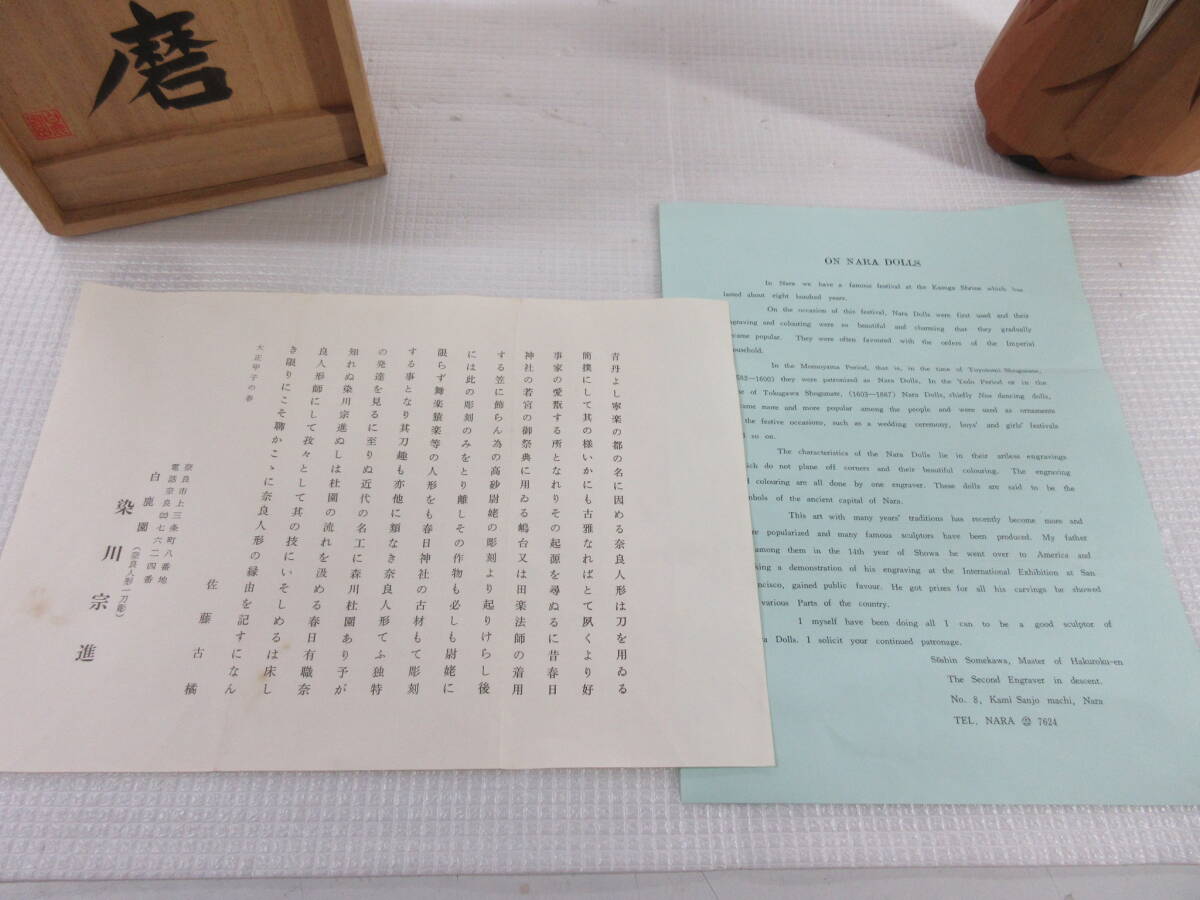 磨
青丹よし寧楽の都の名に因める奈良人形は刀を用ゐる
簡撲にして其の様いかにも古雅なればとて夙くより好
事家の愛翫する所となれりその起源を尋ぬるに昔春日
神社の若宮の御祭典に用ゐる嶋台又は田楽法師の着用
する笠に飾らん為の高砂尉姥の彫刻より起りけらし後
には此の彫刻のみをとり離しその作物も必しも尉姥に
限らず舞楽猿楽等の人形をも春日神社の古材もて彫刻
する事となり其刀趣も亦他に類なき奈良人形てふ独特
の発達を見るに至りぬ近代の名工に森川杜園あり予が
知れぬ染川宗進ぬしは杜園の流れを汲める春日有職奈
良人形師にして孜々として其の技にいそしめるは床し
き限りにこそ聊かこゝに奈良人形の縁由を記すになん
大正甲子の春
佐藤古橘
奈良市上三条町八番地
電話奈良㉒七六二四番
白鹿園(奈良人形一刀彫)
染川宗進
ON NARA DOLLS
In Nara we have a famous festival at the Kasuga Shrine which has
lasted about eight hundred years.
On the occasion of this festival, Nara Dolls were first used and their
ngraving and colouring were so beautiful and charming that they gradually
came popular. They were often favoured with the orders of the Imperial
ousehold.
In the Momoyama Period, that is, in the time of Toyotomi Shogunate,
582—1600) they were patronized as Nara Dolls, In the Yedo Period or in the
e of Tokugawa Shogunate, (1603—1867) Nara Dolls, chiefly Noo dancing dolls,
ome more and more popular among the people and were used as ornaments
the festive occasions, such as a wedding ceremony, boys' and girls' festivals
so on.
The characteristics of the Nara Dolls lie in their artless engravings
ich do not plane off corners and their beautiful colouring. The engraving
colouring are all done by one engraver. These dolls are said to be the
bols of the ancient capital of Nara.
This art with many years' traditions has recently become more and
e popularized and many famous sculptors have been produced. My father
among them in the 14th year of Showa he went over to America and
king a demonstration of his engraving at the International Exhibition at San
cisco, gained public favour. He got prizes for all his carvings he showed
various Parts of the country.
I myself have been doing all I can to be a good sculptor of
a Dolls. I solicit your continued patronage.
Sōshin Somekawa, Master of Hakuroku-en
The Second Engraver in descent.
No. 8, Kami Sanjo machi, Nara
TEL. NARA ㉒ 7624